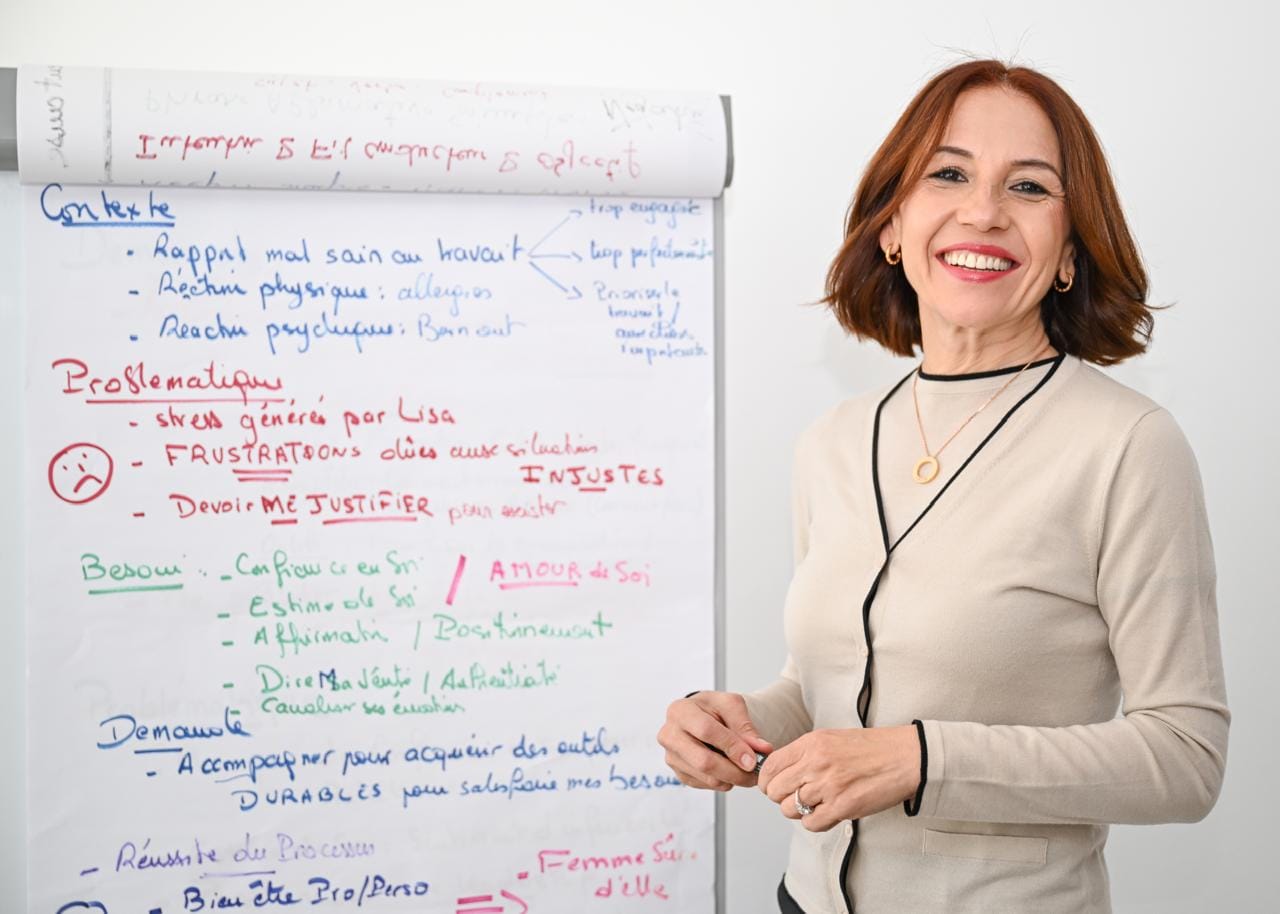 Contexte
- Rapport mal sain au travail
trop engagée
trop perfectionniste
Prioriser le
travail /
- Réaction physique : allergies
- Réaction psychique : Burn out
Problematique
- stress générés par Lisa
- FRUSTRATIONS dûes aux situations
INJUSTES
- Devoir ME JUSTIFIER pour exister
Besoin : - Confiance en Soi / AMOUR de Soi
- Estime de Soi
- Affirmation / Positionnement
- Dire Ma Vérité / Authenticité
Canaliser ses émotions
Demande
- Accompagner pour acquérir des outils
DURABLES pour satisfaire mes besoins
- Réussite du Processus
- Bien être Pro/Perso
- Femme Sûre
d'elle